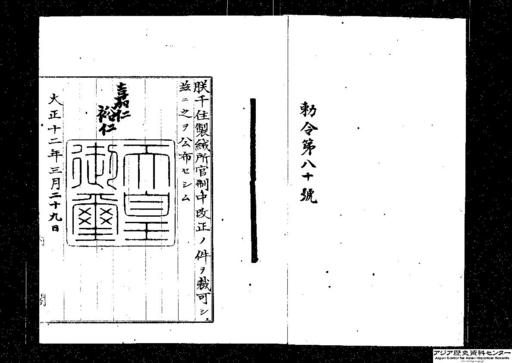 勅令第八十號
朕千住製絨所官制中改正ノ件ヲ裁可シ
茲ニ之ヲ公布セシム
嘉仁
裕仁
天皇
御璽
大正十二年三月二十九日
アジア歴史資料センター
Japan Center for Asian Historical Records